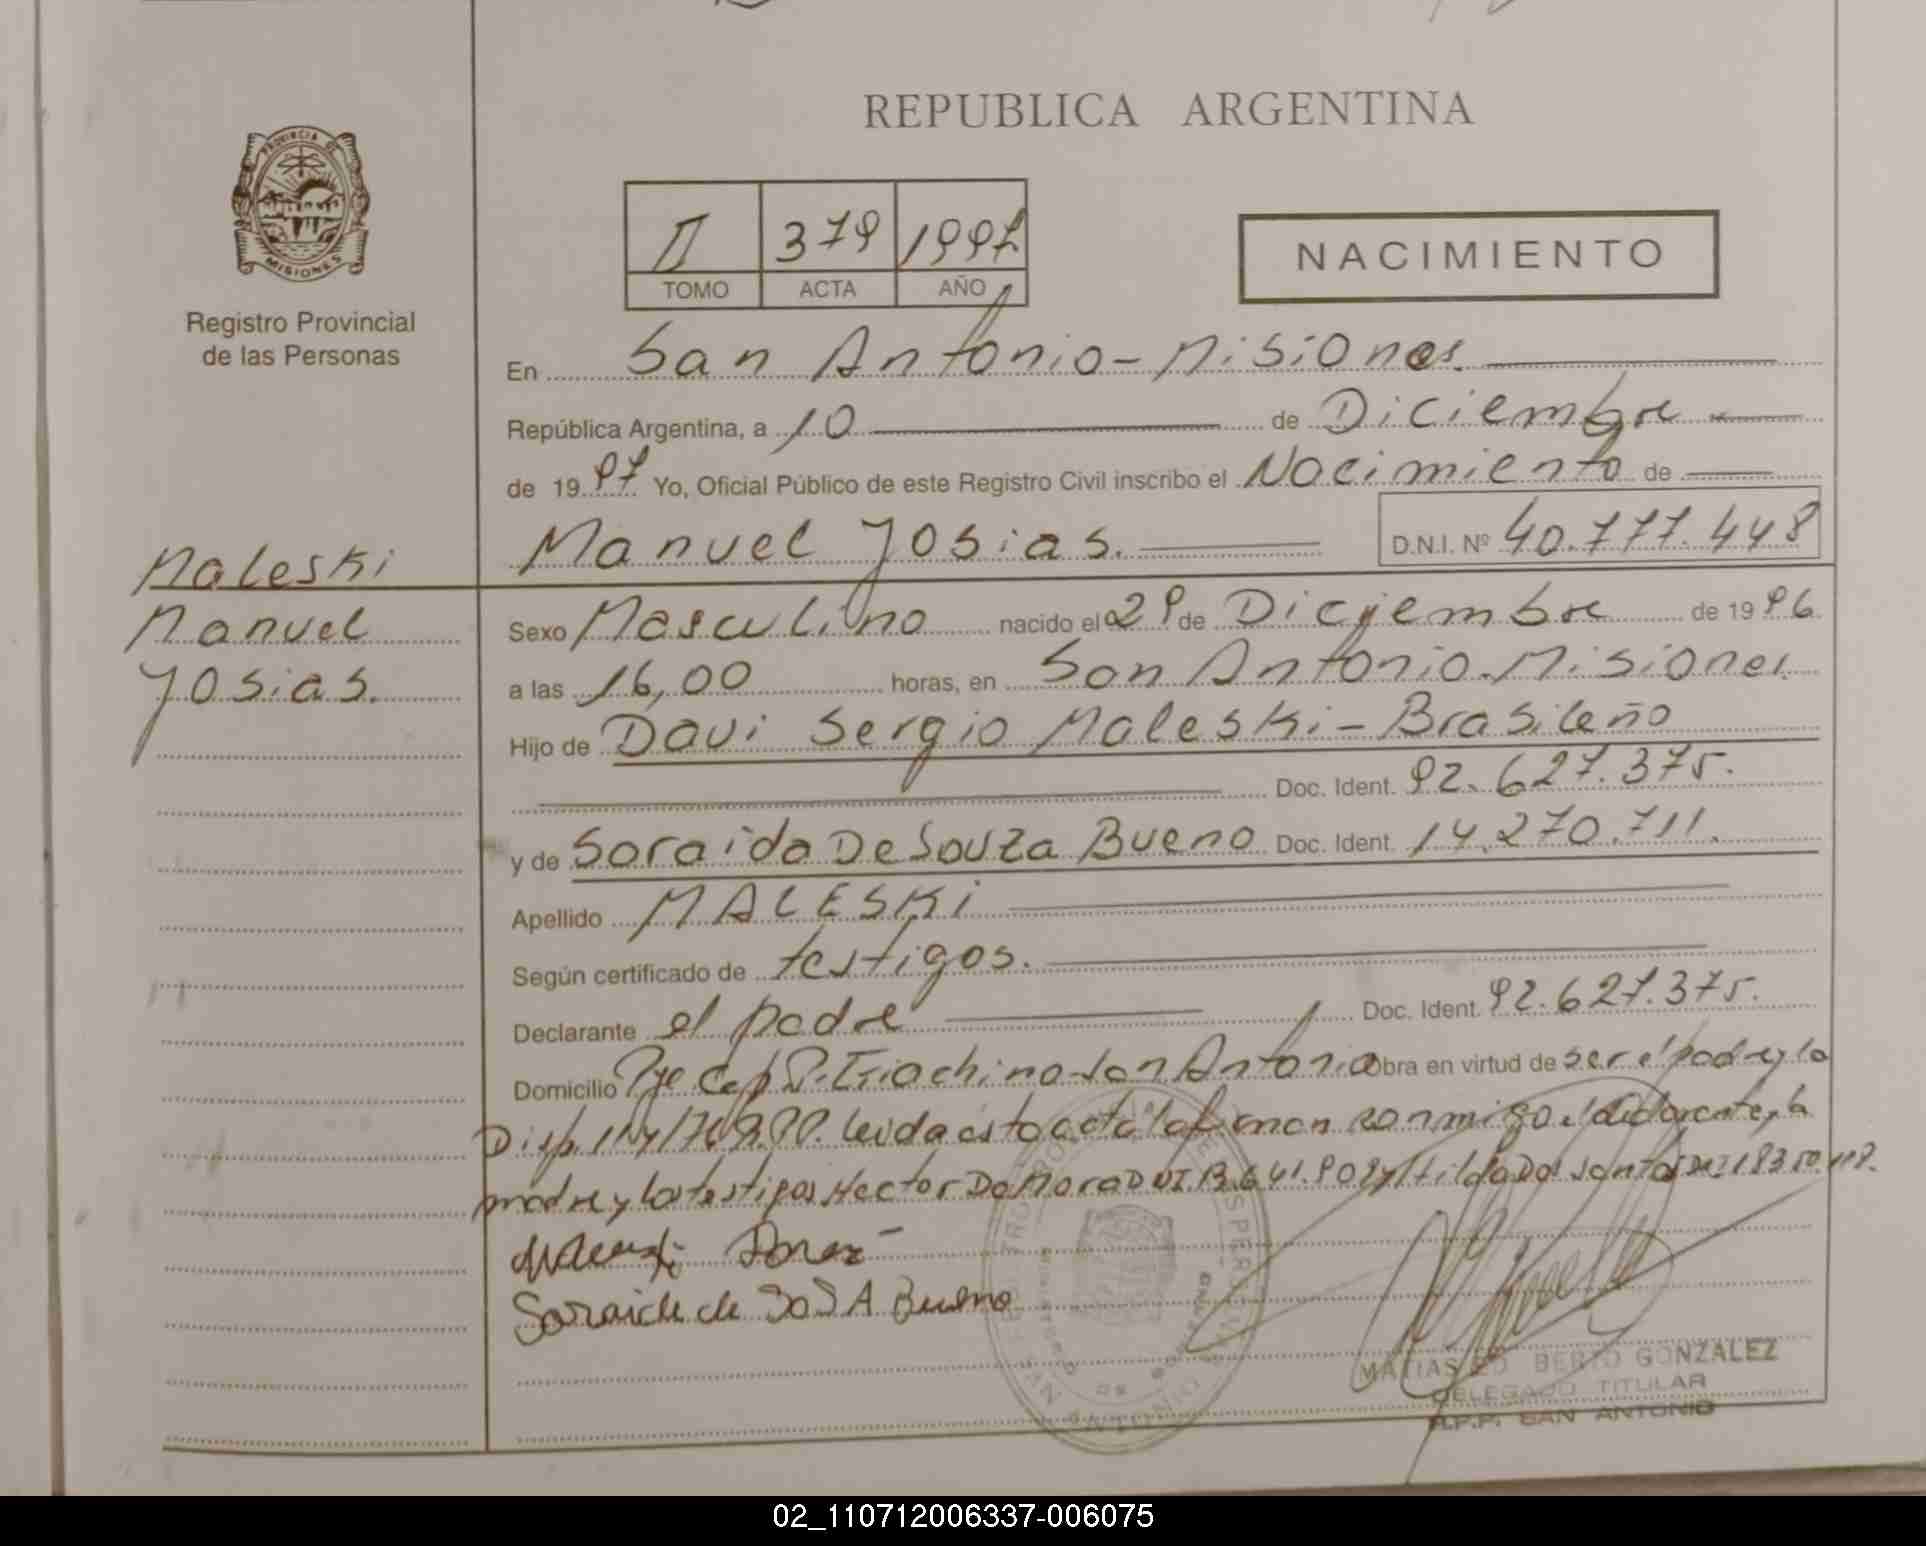 REPUBLICA ARGENTINA
PROVINCIA DE MISIONES
Registro Provincial
de las Personas
II 379 1997
TOMO ACTA AÑO
NACIMIENTO
En San Antonio - Misiones.
República Argentina, a 10 de Diciembre
de 1997 Yo, Oficial Público de este Registro Civil inscribo el Nacimiento de
Manuel Josias. D.N.I. Nº 40.777.448
Maleski
Manuel
Josias.
Sexo Masculino nacido el 29 de Diciembre de 1996
a las 16,00 horas, en San Antonio. Misiones.
Hijo de Davi Sergio Maleski - Brasileño
Doc. Ident. 92.627.375.
y de Soraida De Souza Bueno Doc. Ident. 14.270.711.
Apellido MALESKI
Según certificado de testigos.
Declarante el padre Doc. Ident. 92.627.375.
Domicilio San Antonio Obra en virtud de ser el padre y la
Disp. leida esta acta la firman conmigo el declarante, la
madre y los testigos Hector Da Mora DNI
Bueno
MATIAS GONZALEZ
DELEGADO TITULAR
R.P.P. SAN ANTONIO
02_110712006337-006075